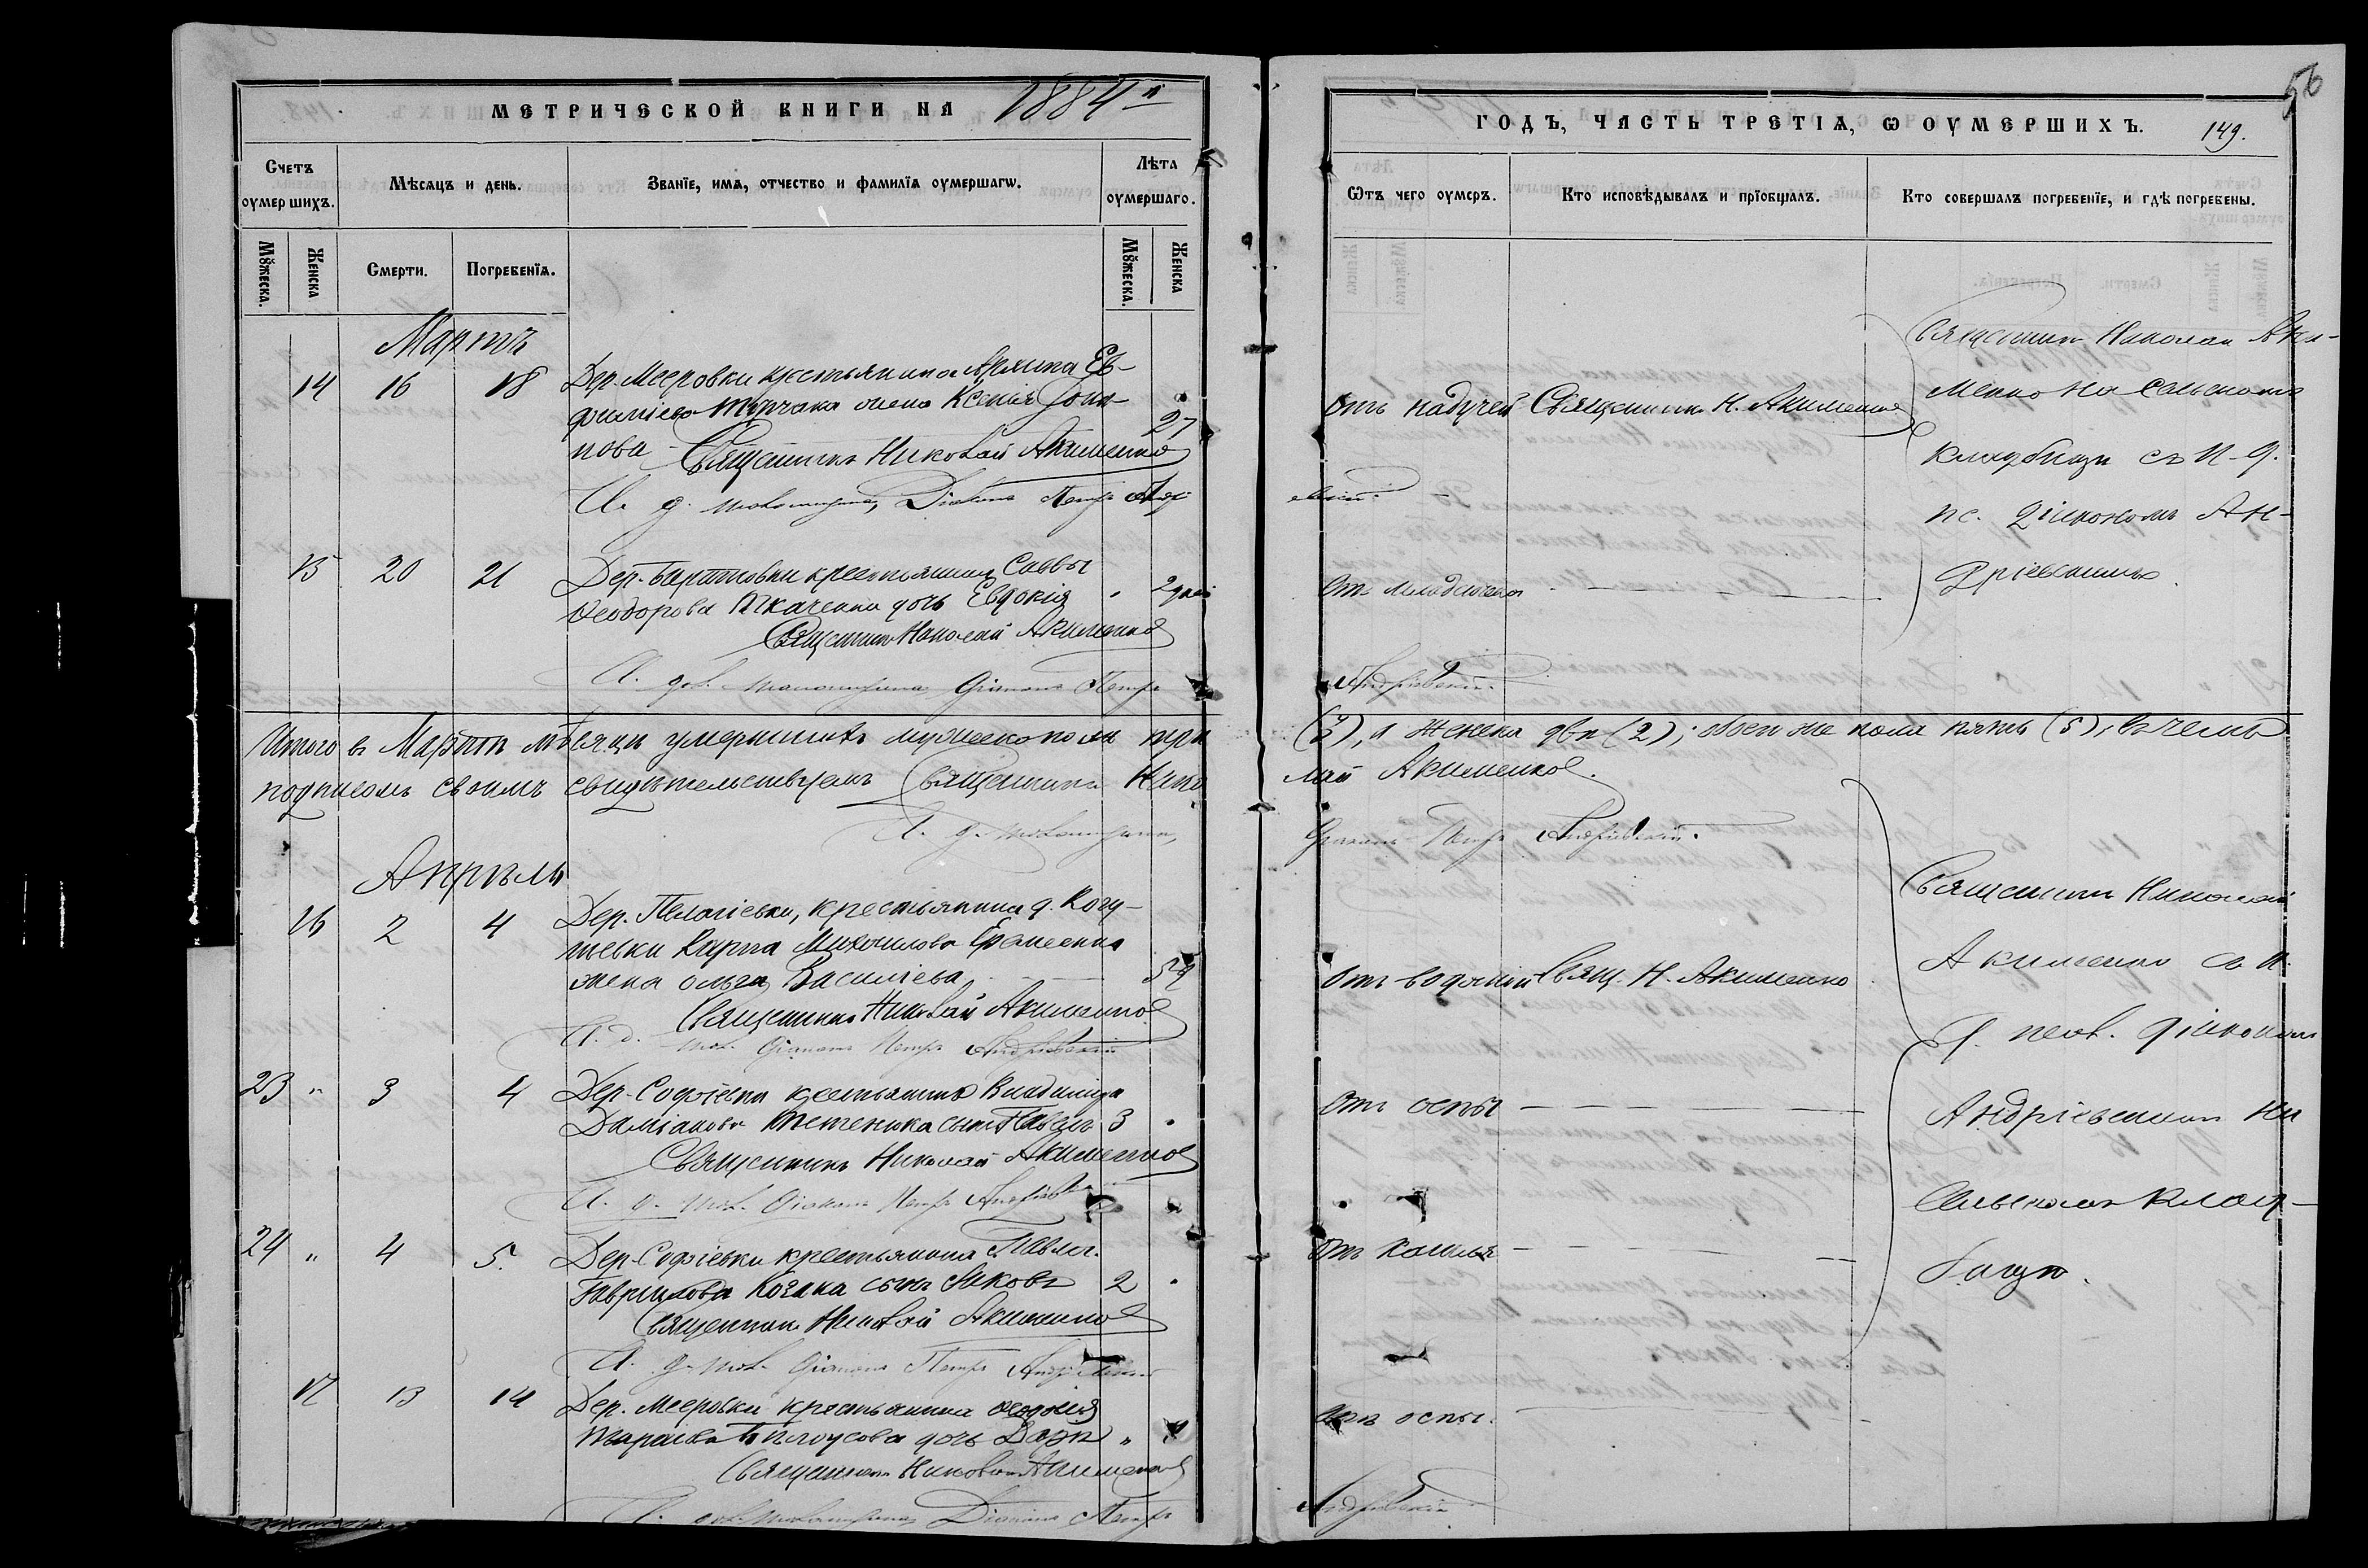 МЕТРИЧЕСКОЙ КНИГИ НА 1884й
Счетъ оумершихъ.
Мѣсяцъ и день.
Званїе, имѧ, отчество и фамилїѧ оумершагѡ.
Лѣта оумершаго.
Мꙋжеска.
Женска
Смерти.
Погребенїѧ.
Мꙋжеска.
Женска
Мартъ
14 16 18 Дер. Мееровки крестьянина
Турчака жена Ксенія
нова 27
Священникъ Николай Акименко
И. д. псаломщика, Діаконъ Петръ
15 20 21 Дер. крестьянина Саввы
Ѳеодорова Ткаченка дочь Евдокія 2 дней
Священникъ Николай Акименко
И. д. псаломщика Діаконъ Петръ
Итого въ Мартѣ мѣсяцѣ умершихъ мужеска пола три
подписомъ своимъ свидѣтельствуемъ Священникъ Нико
И. д. псаломщика,
Апрѣль
16 2 4 Дер. Пелагіевки, крестьянина д.
Карпа Михаилова Еременка
жена Ольга Василіева 54
Священникъ Николай Акименко
И. д. псал. Діаконъ Петръ Андріевскій
23 " 3 4 Дер. Софіевки крестьянина Владиміра
Даміанова сынъ Павелъ 3
Священникъ Николай Акименко
И. д. псал. Діаконъ Петръ Андріевскій
24 " 4 5. Дер. Софіевки крестьянина Павла
Гаврилова Козака сынъ Яковъ 2
Священникъ Николай Акименко
И. д. псал. Діаконъ Петръ Андріевскій
17 13 14 Дер. Мееровки крестьянина
Тарасіева Бѣлоусова дочь "
Священникъ Николай Акименко
И. д. псаломщика Діаконъ Петръ
56
ГОДЪ, ЧАСТЬ ТРЕТІѦ, Ѡ ОУМЕРШИХЪ. 149.
Ѿтъ чего оумеръ.
Кто исповѣдывалъ и прїобщалъ.
Кто совершалъ погребенїе, и гдѣ погребены.
Отъ падучей Священникъ Н. Акименко
Священникъ Николай Аки-
менко на сельскомъ
кладбищѣ съ И. д.
пс. Діакономъ Ан-
дріевскимъ.
Отъ младенческой
Андріевскій.
(3), а женска два (2); обоего же пола пять (5), въ чемъ
лай Акименко.
Діаконъ Петръ Андріевскій.
Отъ водянки Свящ. Н. Акименко
Священникъ Николай
Акименко съ И.
д. псал. Діакономъ
Андріевскимъ на
сельскомъ клад-
бищѣ.
Отъ оспы
Отъ кашля
Отъ оспы.
Андріевскій